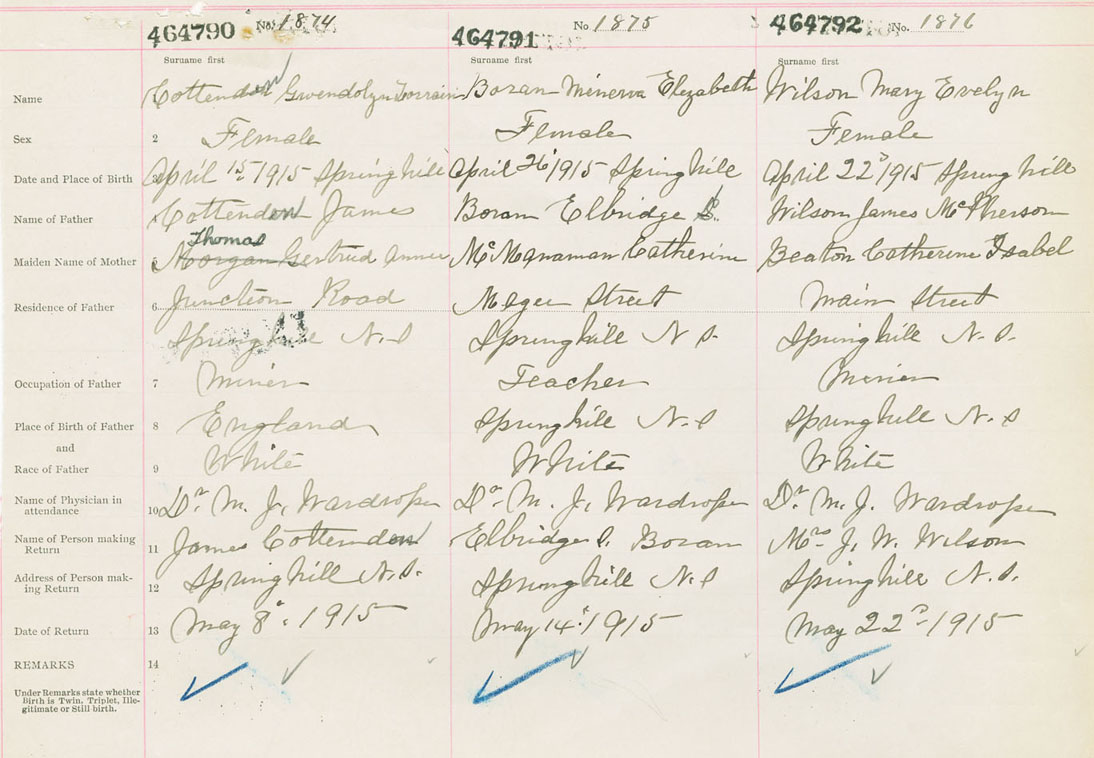 464790 No. 1874 464791 No 1875 464792 No. 1876
Surname first Surname first Surname first
Name Cottenden Gwendolyn Lorrain Boran Minerva Elizabeth Wilson Mary Evelyn
Sex 2 Female Female Female
Date and Place of Birth 3 April 15th 1915 Springhill April 26 1915 Springhill April 22d 1915 Springhill
Name of Father 4 Cottenden James Boran Elbridge S. Wilson James McPherson
Thomas
Maiden Name of Mother 5 Morgan Gertrud Annie McManaman Catherine Beaton Catherine Isabel
Residence of Father 6 Junction Road McGee Street Main Street
Springhill N.S Springhill N S. Springhill N.S.
Occupation of Father 7 Miner Teacher Miner
Place of Birth of Father 8 England Springhill N.S Springhill N.S
and
Race of Father 9 White White White
Name of Physician in
attendance 10 Dr M. J. Wardrope Dr M. J. Wardrope Dr M. J. Wardrope
Name of Person making
Return 11 James Cottenden Elbridge S. Boran Mrs J. W. Wilson
Address of Person mak-
ing Return 12 Springhill N.S. Springhill N.S Springhill N.S.
Date of Return 13 May 8th 1915 May 14th 1915 May 22d 1915
REMARKS 14
Under Remarks state whether
Birth is Twin, Triplet, Ille-
gitimate or Still birth.